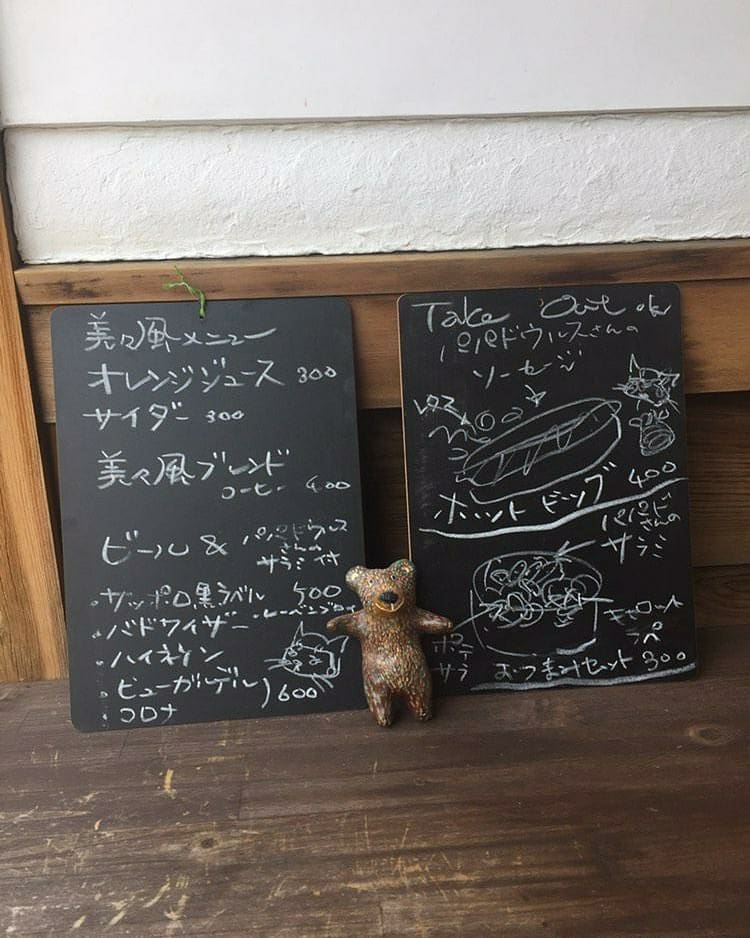 美々風メニュー
オレンジジュース 300
サイダー 300
美々風ブレンド
コーヒー 400
ビール & パパドウルス
さんの
サラミ付
・サッポロ黒ラベル 500
・バドワイザー
・ハイネケン
・ヒューガルデン
・コロナ
)600
Take Out ok
パパドウルスさんの
ソーセージ
レタス
400
ホットドッグ
パパド
さんの
サラミ
キャロット
ラペ
ポテ
サラ
おつまみセット 300